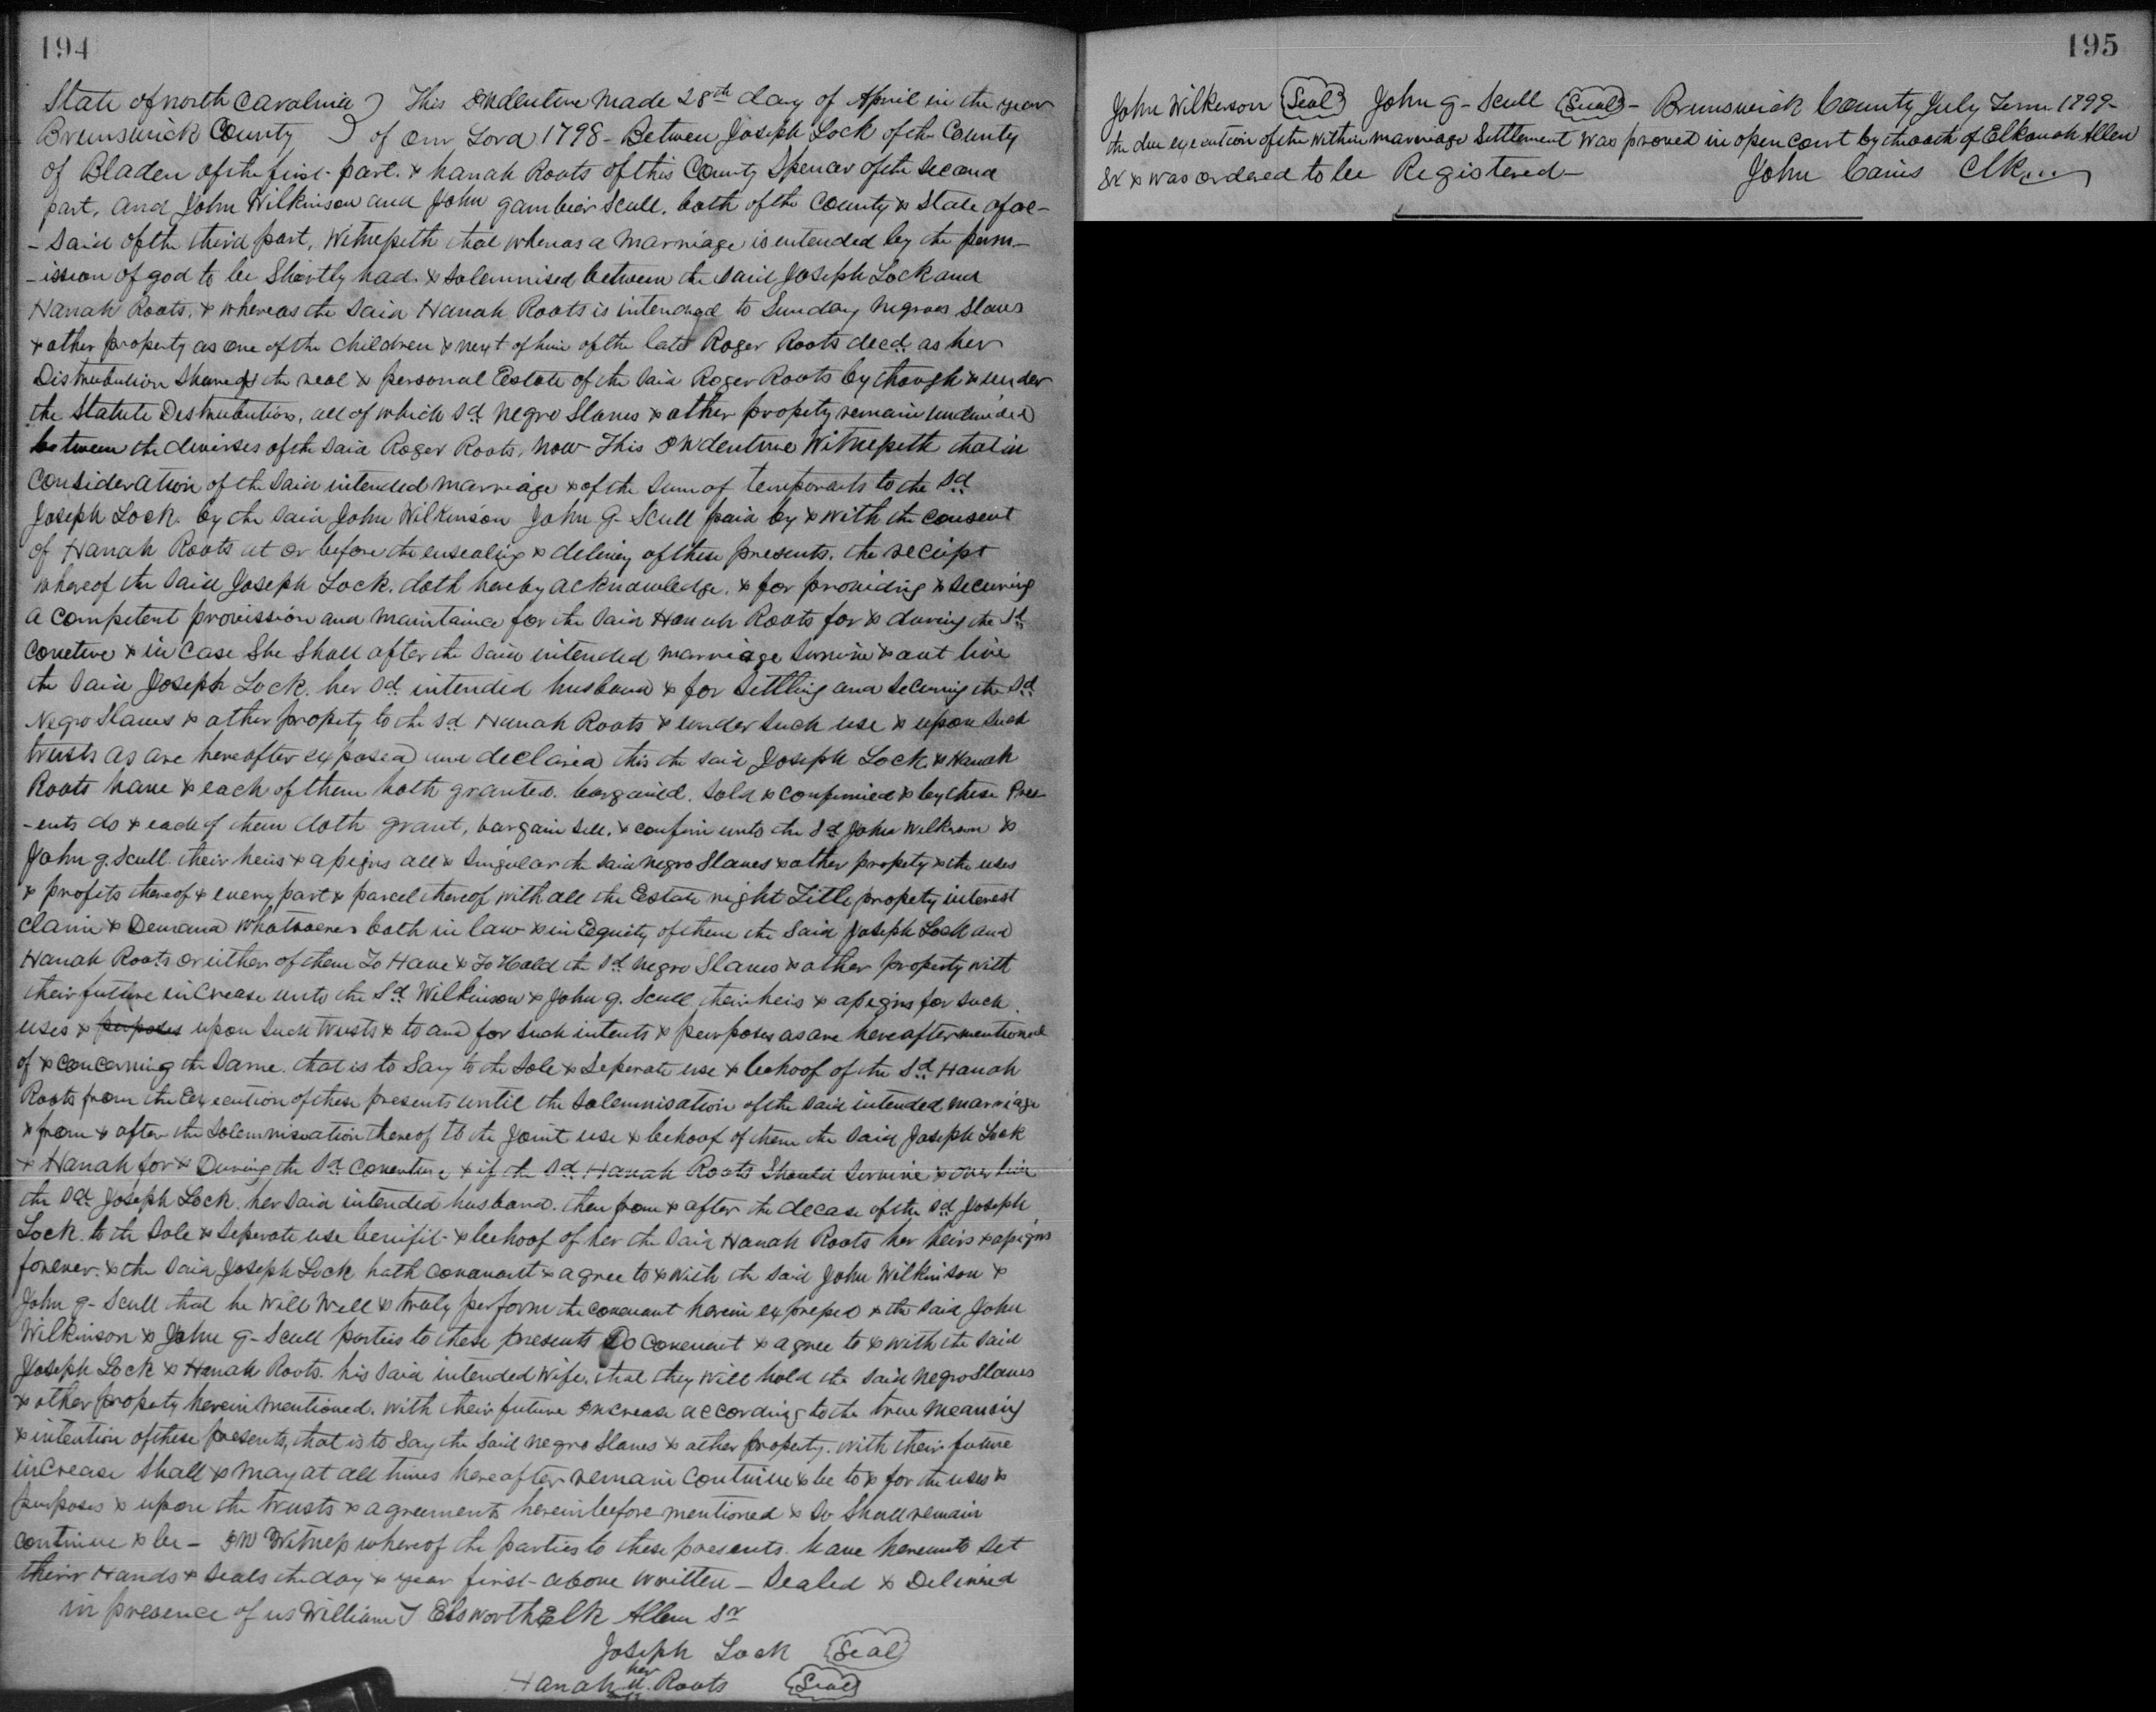 194
State of north Carolnia ) This Indenture Made 28th day of April in the year
Brunswick County ) of our Lord 1798 - Between Joseph Lock of the County
of Bladen of the first part. & hanah Roots of this County Spenar of the Second
part, and John Wilkinson and John gambier Scull. both of the County & State afore-
- Said of the third part, Witnesseth that whereas a Marriage is intended by the perm-
-ission of god to be Shortly had. & Solemnised between the Said Joseph Lock and
Hanah Roots. & whereas the Said Hanah Roots is intended to Sunday Negroes Slaves
& other property as one of the Children & next of him of the late Roger Roots decd. as her
Distrubution Share of the real & personal Estate of the Said Roger Roots by though & under
the Statute Destrubution, all of which sd. Negro Slaves & other propety remain undivided
between the devises of the Said Roger Roots, Now This Indenture Witnesseth that in
Consideration of the Said intended marriage & of the Sum of ten pounds to the Sd.
Joseph Lock. by the Said John Wilkinson John G- Scull paid by & with the Consent
of Hanah Roots at or before the ensealing & delivey of these presents. the reciept
whereof the Said Joseph Lock. doth hereby acknowledge. & for providing & Securing
a Competent provission and maintaince for the Said Hanah Roots for & during the Sd.
Coveture & in Case She Shall after the Said intended marriage Survive & out live
the Said Joseph Lock. her Sd. intended husband & for Settling and Securing the Sd.
Negro Slaves & other propety to the Sd Hanah Roots & under Such use & upon Such
trusts as are hereafter exposed and declaired this the Said Joseph Lock & Hanah
Roots have & each of them hath granted. bargained. Sold & Confirmed & by these Pres-
-ents do & each of them doth grant, bargain Sell. & confirm unto the Sd. John Wilkerson &
John g. Scull their heirs & assigns all & Singular the Said Negro Slaves & other propety & the uses
& profits thereof & every part & parcel thereof with all the Estate right Title propety interest
Claim & Demand Whatsoever both in law & in Equity of them the Said Joseph Lock and
Hanah Roots or either of them To Have & To Hold the Sd. Negro Slaves & other property with
their future inCrease unto the Sd. Wilkinson & John g. Scull their heis & assigns for such
uses & perposes upon Such trusts & to and for Such intents & purposes as are hereaftermentioned
of & Concerning the Same. that is to Say to the Sole & Seperate use & behoof of the Sd. Hanah
Roots from the Execution of these presents until the Solemnisation of the Said intended marriage
& from & after the Solemnisation thereof to the Joint use & behoof of them the Said Joseph Lock
& Hanah for & During the Sd. Coverture & if the Sd. Hanah Roots Should Survive & over live
the Sd. Joseph Lock. her Said intended husband. then from & after the decase of the Sd. Joseph
Lock. to the Sole & Seperate use benifit- & behoof of her the Said Hanah Roots her heirs & assigns
forever. & the Said Joseph Lock hath Covanant & agree to & with the Said John Wilkinson &
John g- Scull that he Will Well & truly perform the covenant herein expressed & the Said John
Wilkinson & John g- Scull parties to these presents Do Covenant & agree to & with the Said
Joseph Lock & Hanah Roots. his Said intended Wife. that they will hold the Said Negro Slaves
& other propety herein Mentioned. with their future Increase according to the true Meaning
& intention of these presents, that is to Say the Said Negro Slaves & other property. with their future
inCrease Shall & may at all times hereafter remain Continue & be to & for the uses &
purposes & upon the trusts & agreements hereinbefore mentioned & So Shall remain
continue & be - In Witness whereof the parties to these presents. have hereunto Set
their Hands & Seals the day & year first- above written - Sealed & Delivered
in presence of us William J Elsworth Elk Allen Sr
Joseph Lock (Seal)
her
Hanah H. Roots (Seal)
195
John Wilkerson (Seal) John g- Scull (Seal) - Brunswick County July Term 1799-
the due execution of the within marreage Settlement Was proved in open court by the oath of Elkanah Allen
Sr & was ordered to be Registered - John Cains Clk